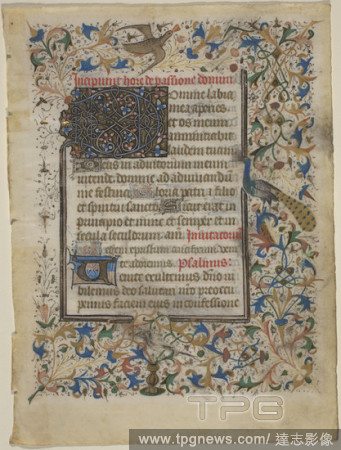 Incipiunt hore de passione domini
Domine labia
mea aperies
et os meum
annuntiabit
laudem tuam
Deus in adiutorium meum
intende domine ad adiuvandū
me festina Gloria patri ⁊ filio
et spiritui sancto Sicut erat in
principio et nunc et semper et in
secula seculorum. am. Invitatoriū
et adoremus Psalmus:
Venite exultemus dño iu
bilemus deo salutari nrō preoccu
pemus faciem eius in confessione
TPG
www.tpgnews.com/ 達志影像